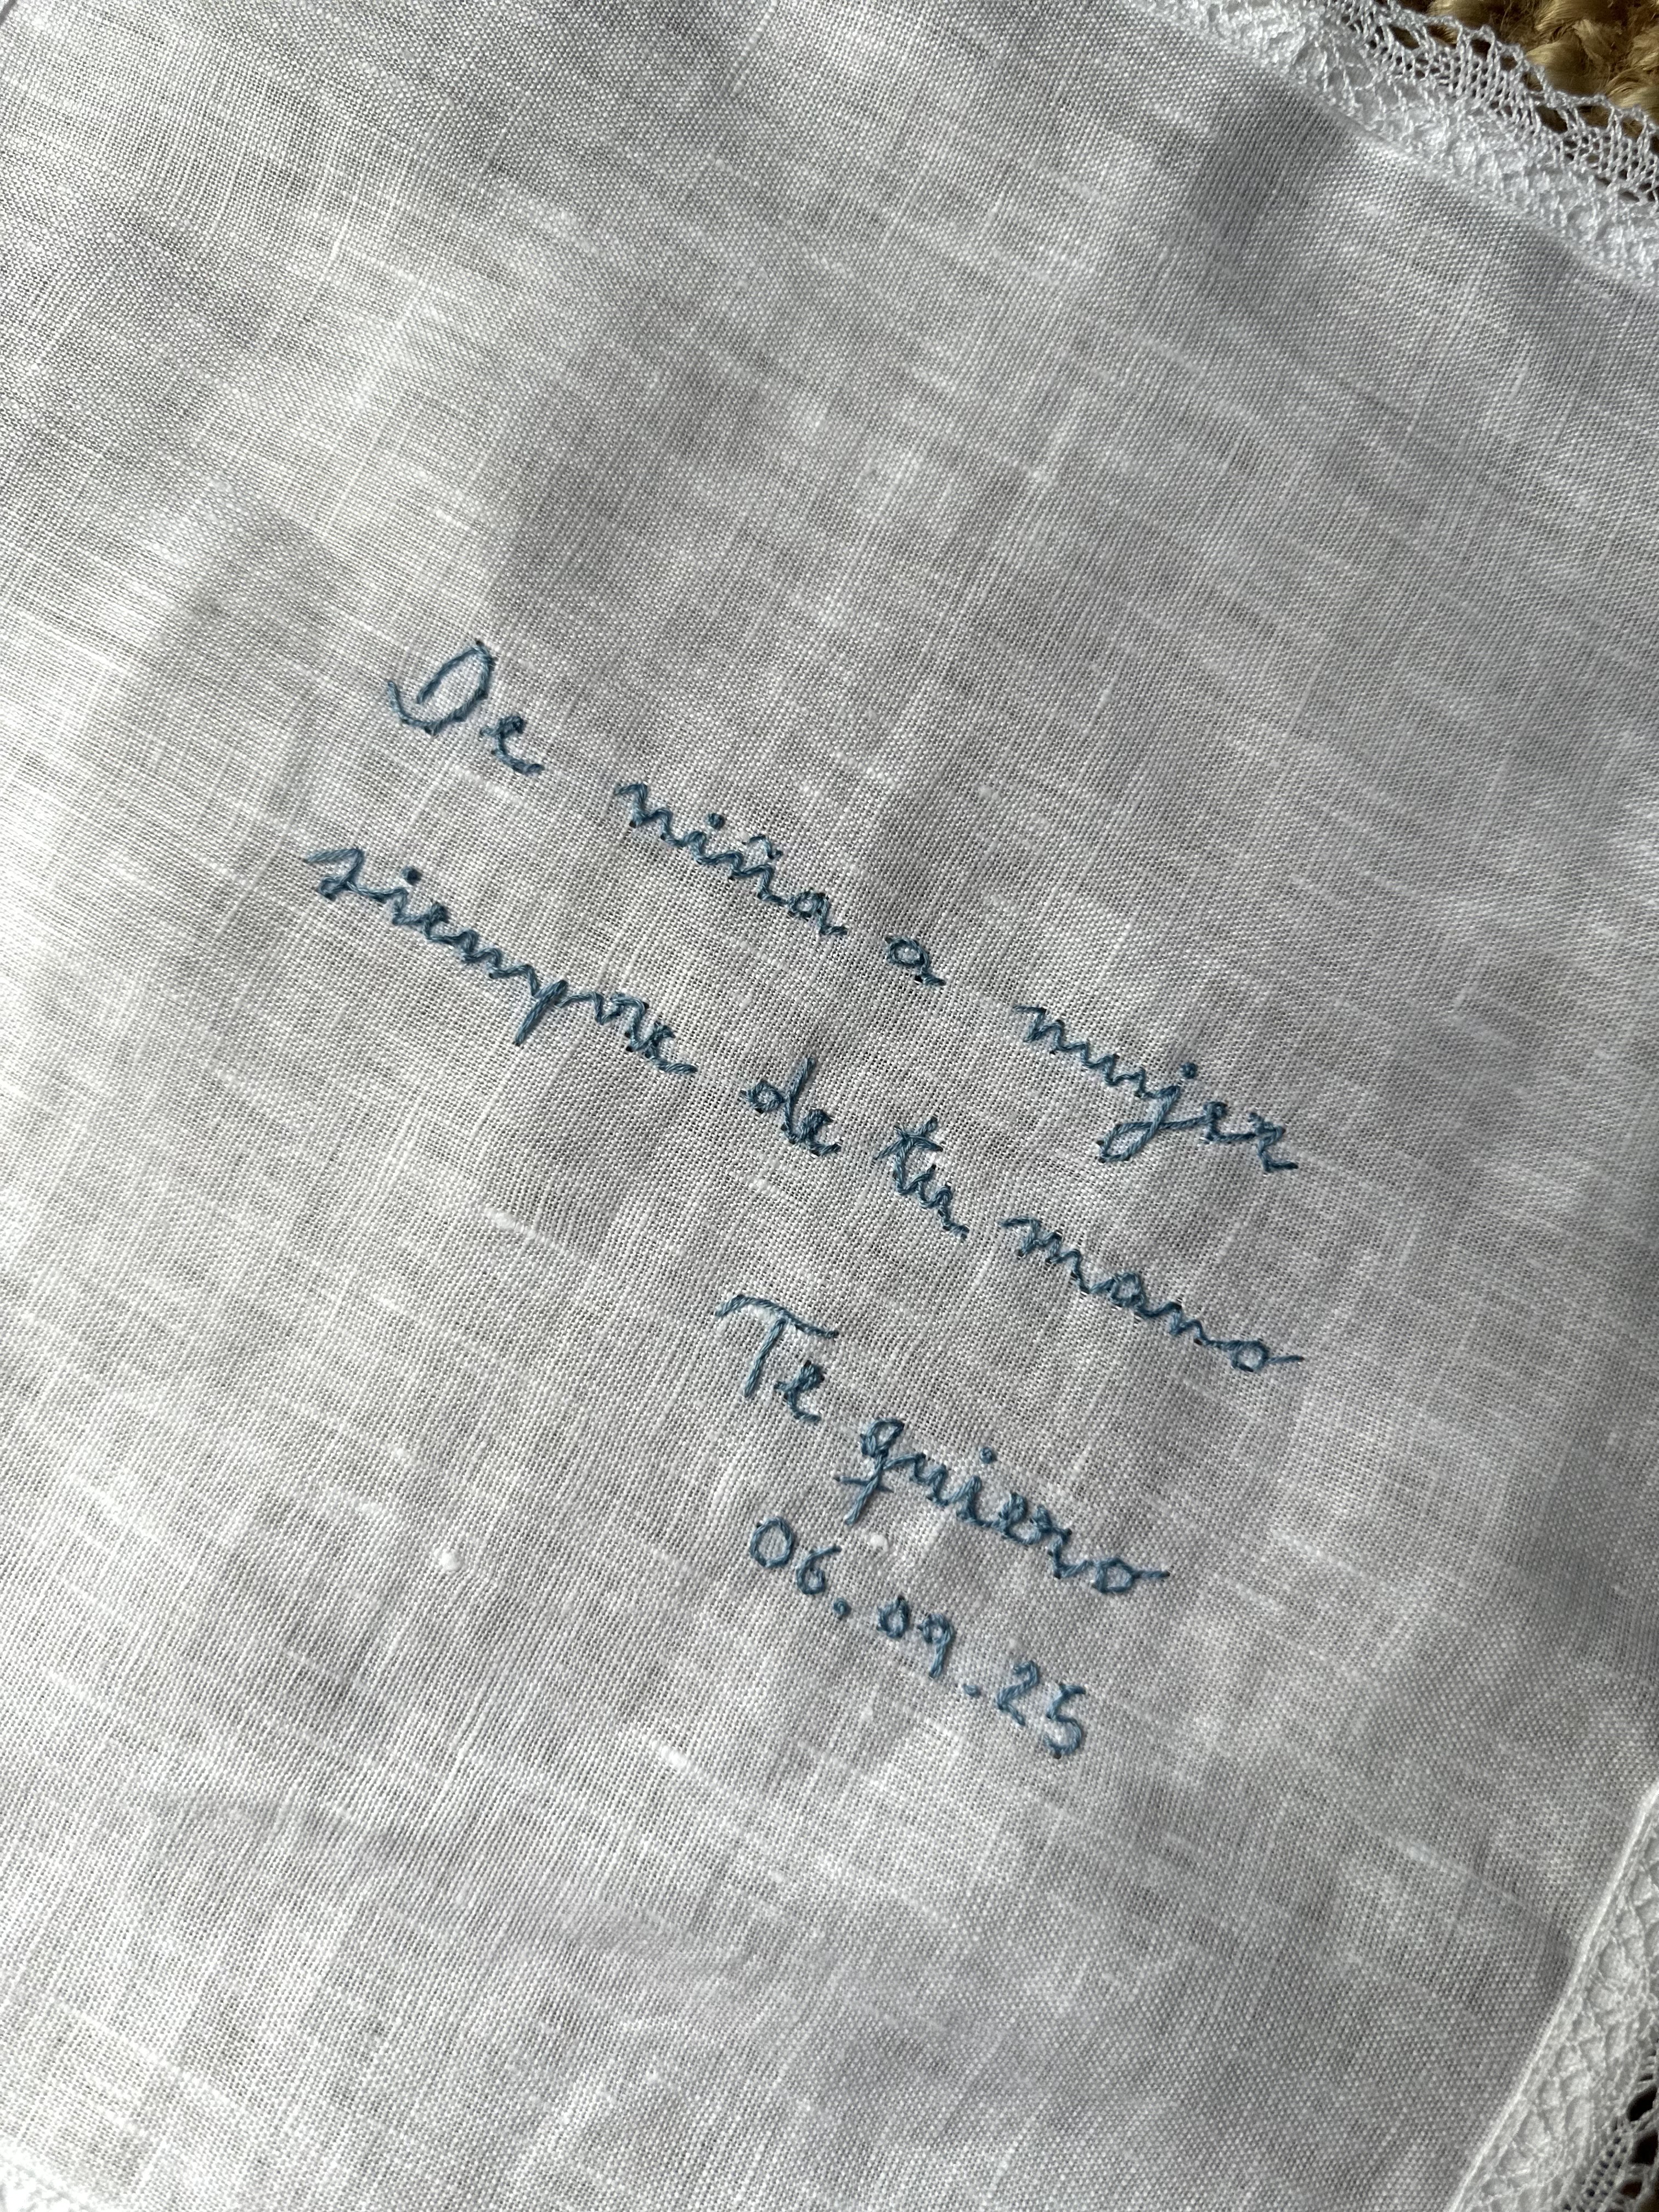 De niña a mujer
siempre de tu mano
Te quiero
06.09.25